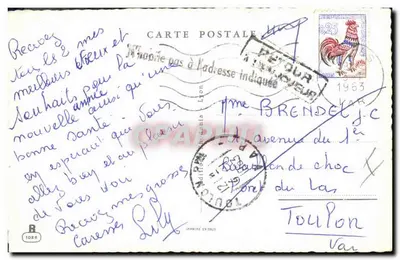 CARTE POSTALE
N'habite pas à l'adresse indiquée
RETOUR
A L'ENVOYEUR
1963
VAR
Recevez
tous les 2 mes
meilleurs voeux et
souhaits pour la
nouvelle année ainsi qu'une
bonne santé
en espérant que vous
allez bien et au plaisir
de vous voir
Recevez mes grosses
caresses Lily
Mme BRENDEL J.C
avenue du 1er
Bataillon de choc
Pont du Las
TOULON
Var
TOULON
CAPL
R